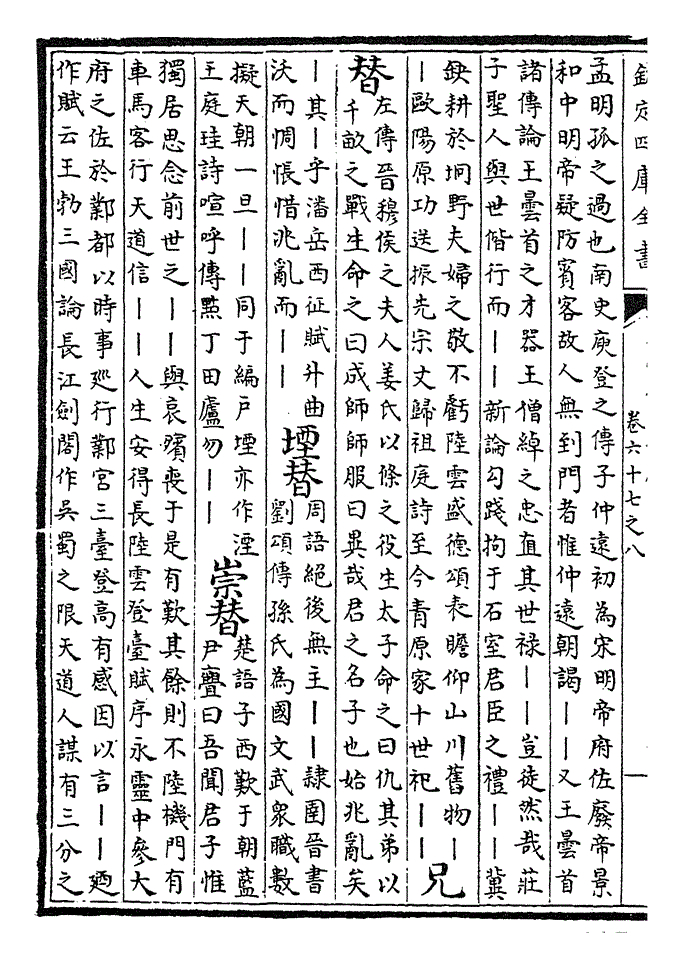 欽定四庫全書
卷六十七之八
孟明孤之過也南史庾登之傳子仲遠初為宋明帝府佐廢帝景
和中明帝疑防賓客故人無到門者惟仲遠朝謁｜｜又王曇首
諸傳論王曇首之才器王僧綽之忠直其世祿｜｜豈徒然哉莊
子聖人與世偕行而｜｜新論勾踐拘于石室君臣之禮｜｜冀
鈌耕於坰野夫婦之敬不虧陸雲盛德頌表瞻仰山川舊物｜
｜歐陽原功送振先宗丈歸祖庭詩至今青原家十世祀｜｜
兄
替
左傳晉穆侯之夫人姜氏以條之役生太子命之曰仇其弟以
千畝之戰生命之曰成師師服曰異哉君之名子也始兆亂矣
｜其｜乎潘岳西征賦升曲
沃而惆悵惜兆亂而｜｜
堙替
周語絕後無主｜｜隷圉晉書
劉頌傳孫氏為國文武衆職數
擬天朝一旦｜｜同于編户堙亦作湮
王庭珪詩喧呼傳㸃丁田廬勿｜｜
崇替
楚語子西歎于朝藍
尹亹曰吾聞君子惟
獨居思念前世之｜｜與哀殯喪于是有歎其餘則不陸機門有
車馬客行天道信｜｜人生安得長陸雲登臺賦序永靈中參大
府之佐於鄴都以時事廵行鄴宮三臺登高有感因以言｜｜廼
作賦云王勃三國論長江劍閣作吳蜀之限天道人謀有三分之